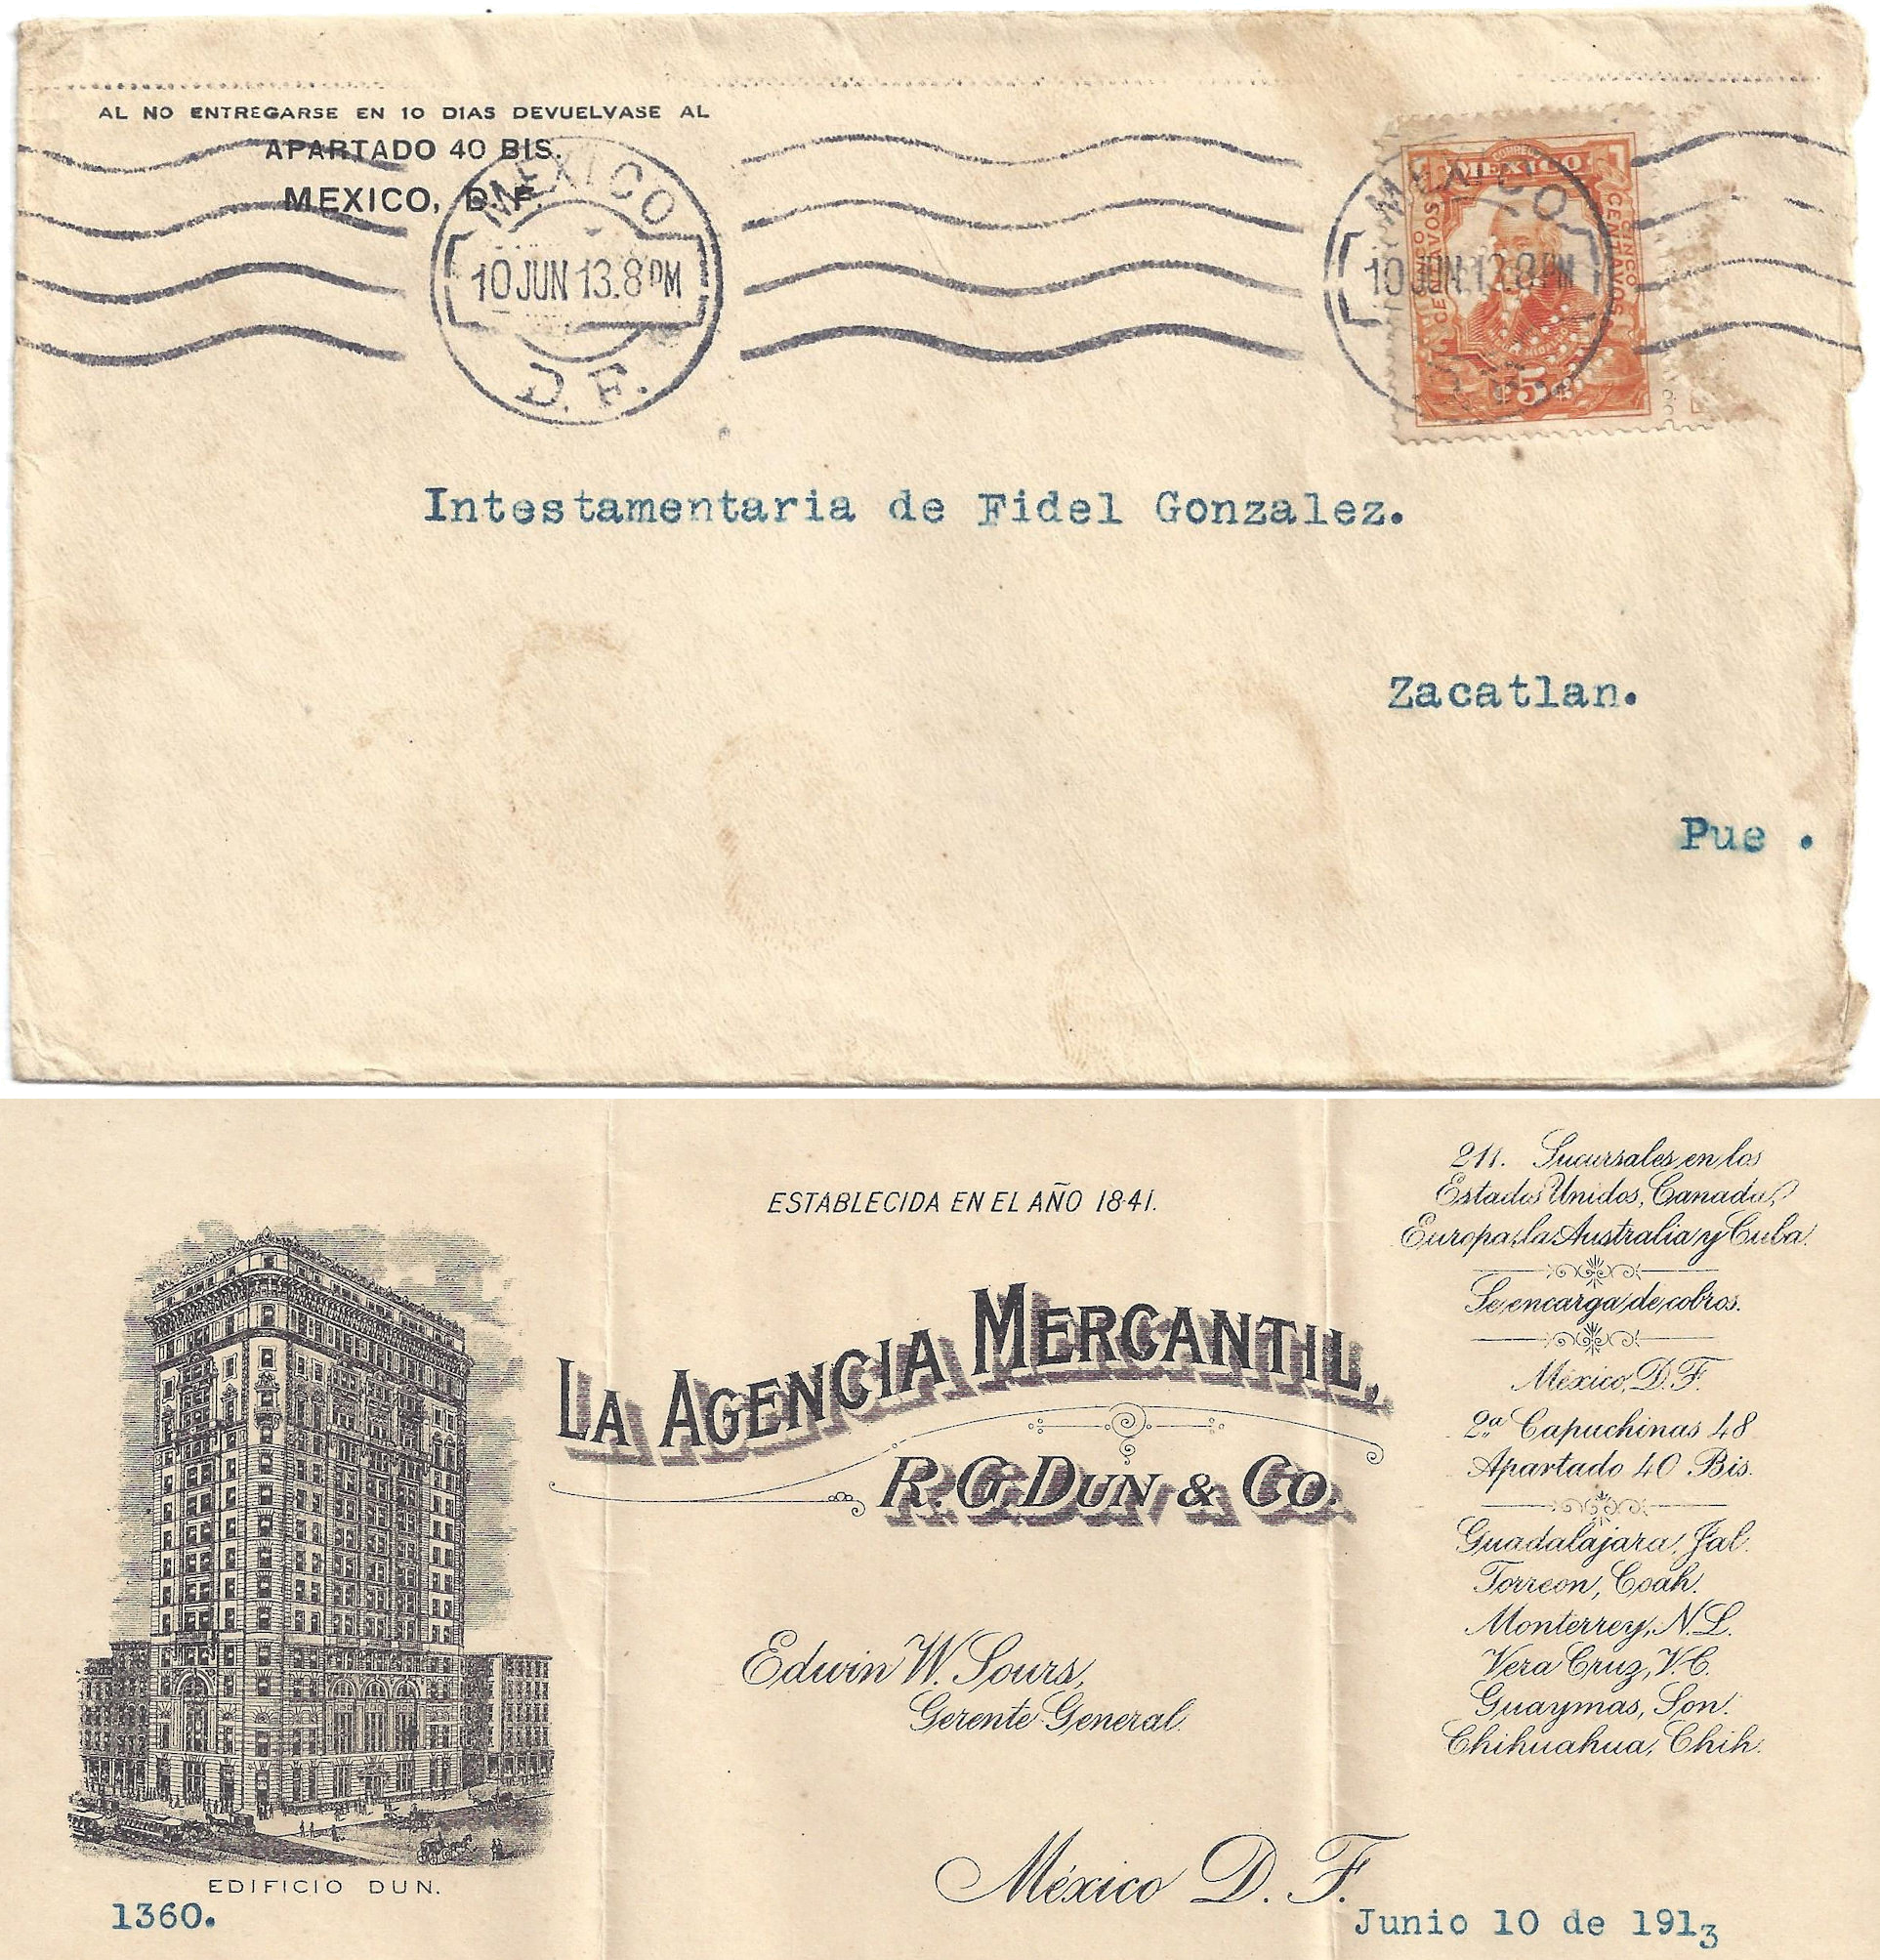 AL NO ENTREGARSE EN 10 DIAS DEVUELVASE AL
APARTADO 40 BIS.
MEXICO, D. F.
MEXICO
10 JUN 13.8 PM
D. F.
MEXICO
10 JUN 13.8 PM
CORREOS
MEXICO
CINCO CENTAVOS
CINCO CENTAVOS
5
Intestamentaria de Fidel Gonzalez.
Zacatlan.
Pue .
ESTABLECIDA EN EL AÑO 1841.
LA AGENCIA MERCANTIL,
R. G. DUN & CO.
Edwin W. Sours,
Gerente General.
EDIFICIO DUN.
1360.
211. Sucursales en los
Estados Unidos, Canada,
Europa, la Australia y Cuba.
Se encarga de cobros.
México, D. F.
2ª Capuchinas 48
Apartado 40 Bis.
Guadalajara, Jal.
Torreon, Coah.
Monterrey, N. L.
Vera Cruz, V. C.
Guaymas, Son.
Chihuahua, Chih.
México D. F.
Junio 10 de 1913